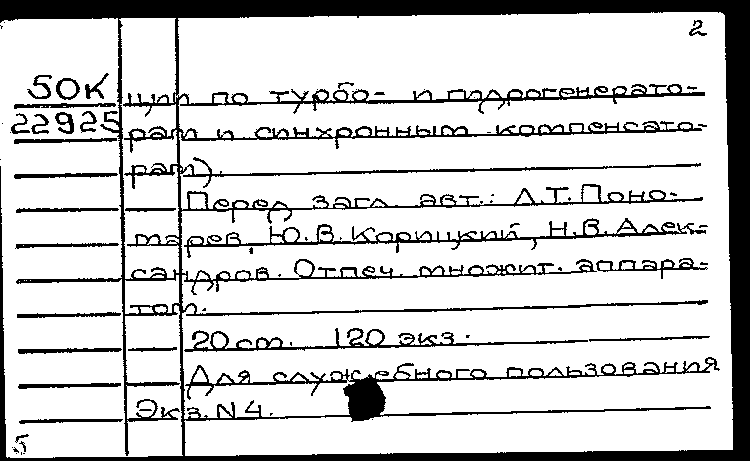 2
50К
22925
ции по турбо- и гидрогенерато-
рам и синхронным компенсато-
рам).
Перед загл. авт.: Л.Т. Поно-
марев, Ю.В. Корицкий, Н.В. Алек-
сандров. Отпеч. множит. аппара-
том.
20 cm. 120 экз.
Для служебного пользования
Экз. N 4.
5